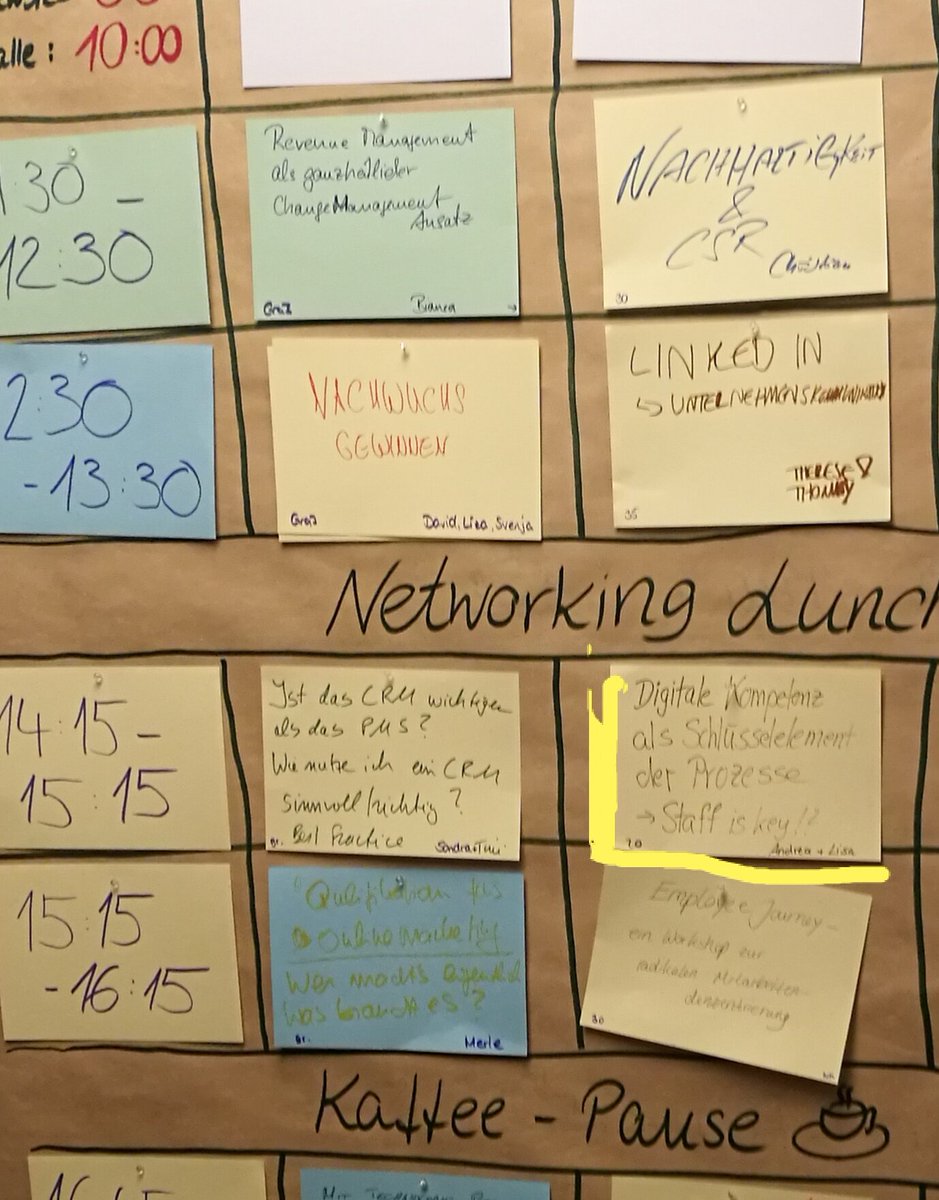 alle: 10:00
Revenue Management
als ganzheitlicher
Change Management
Ansatz
Graz
Bianca
NACHHALTIGKEIT
&
CSR
Christian
30
:30 –
12:30
NACHWUCHS
GEWINNEN
Graz
David, Lisa, Svenja
LINKED IN
↳ UNTERNEHMENSKOMMUNIKATION
THERESE &
THOMMY
35
2:30
-13:30
Networking Lunch
14:15 –
15:15
Ist das CRM wichtiger
als das PMS?
Wie nutze ich ein CRM
sinnvoll/richtig?
Best Practice
Br.
Digitale Kompetenz
als Schlüsselelement
der Prozesse
→ Staff is key!?
70
Andrea + Lisa
15:15
-16:15
Qualifikation fürs
Onlinemarketing
Wer macht's eigentlich
was braucht es?
Br.
Merle
Employee Journey –
ein Workshop zur
radikalen Mitarbeiter-
30
Kaffee - Pause